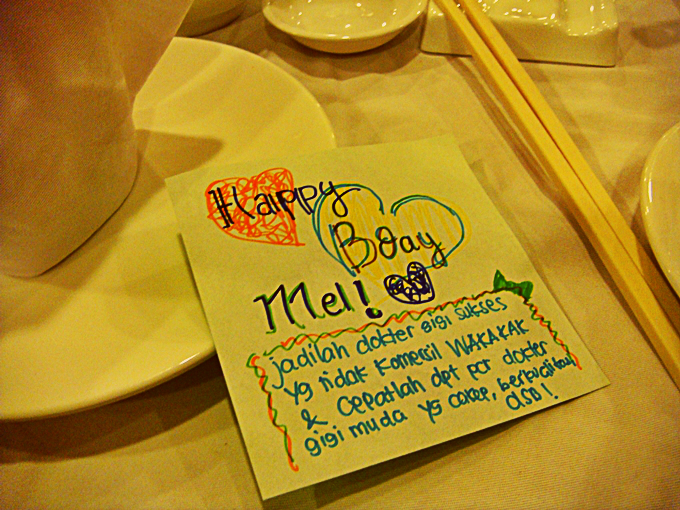 Happy
BDay
Mel!
jadilah dokter gigi sukses
yg tidak komersil WAKAKAK
& cepatlah dpt pcr dokter
gigi muda yg cakep, berbudi
dsb!